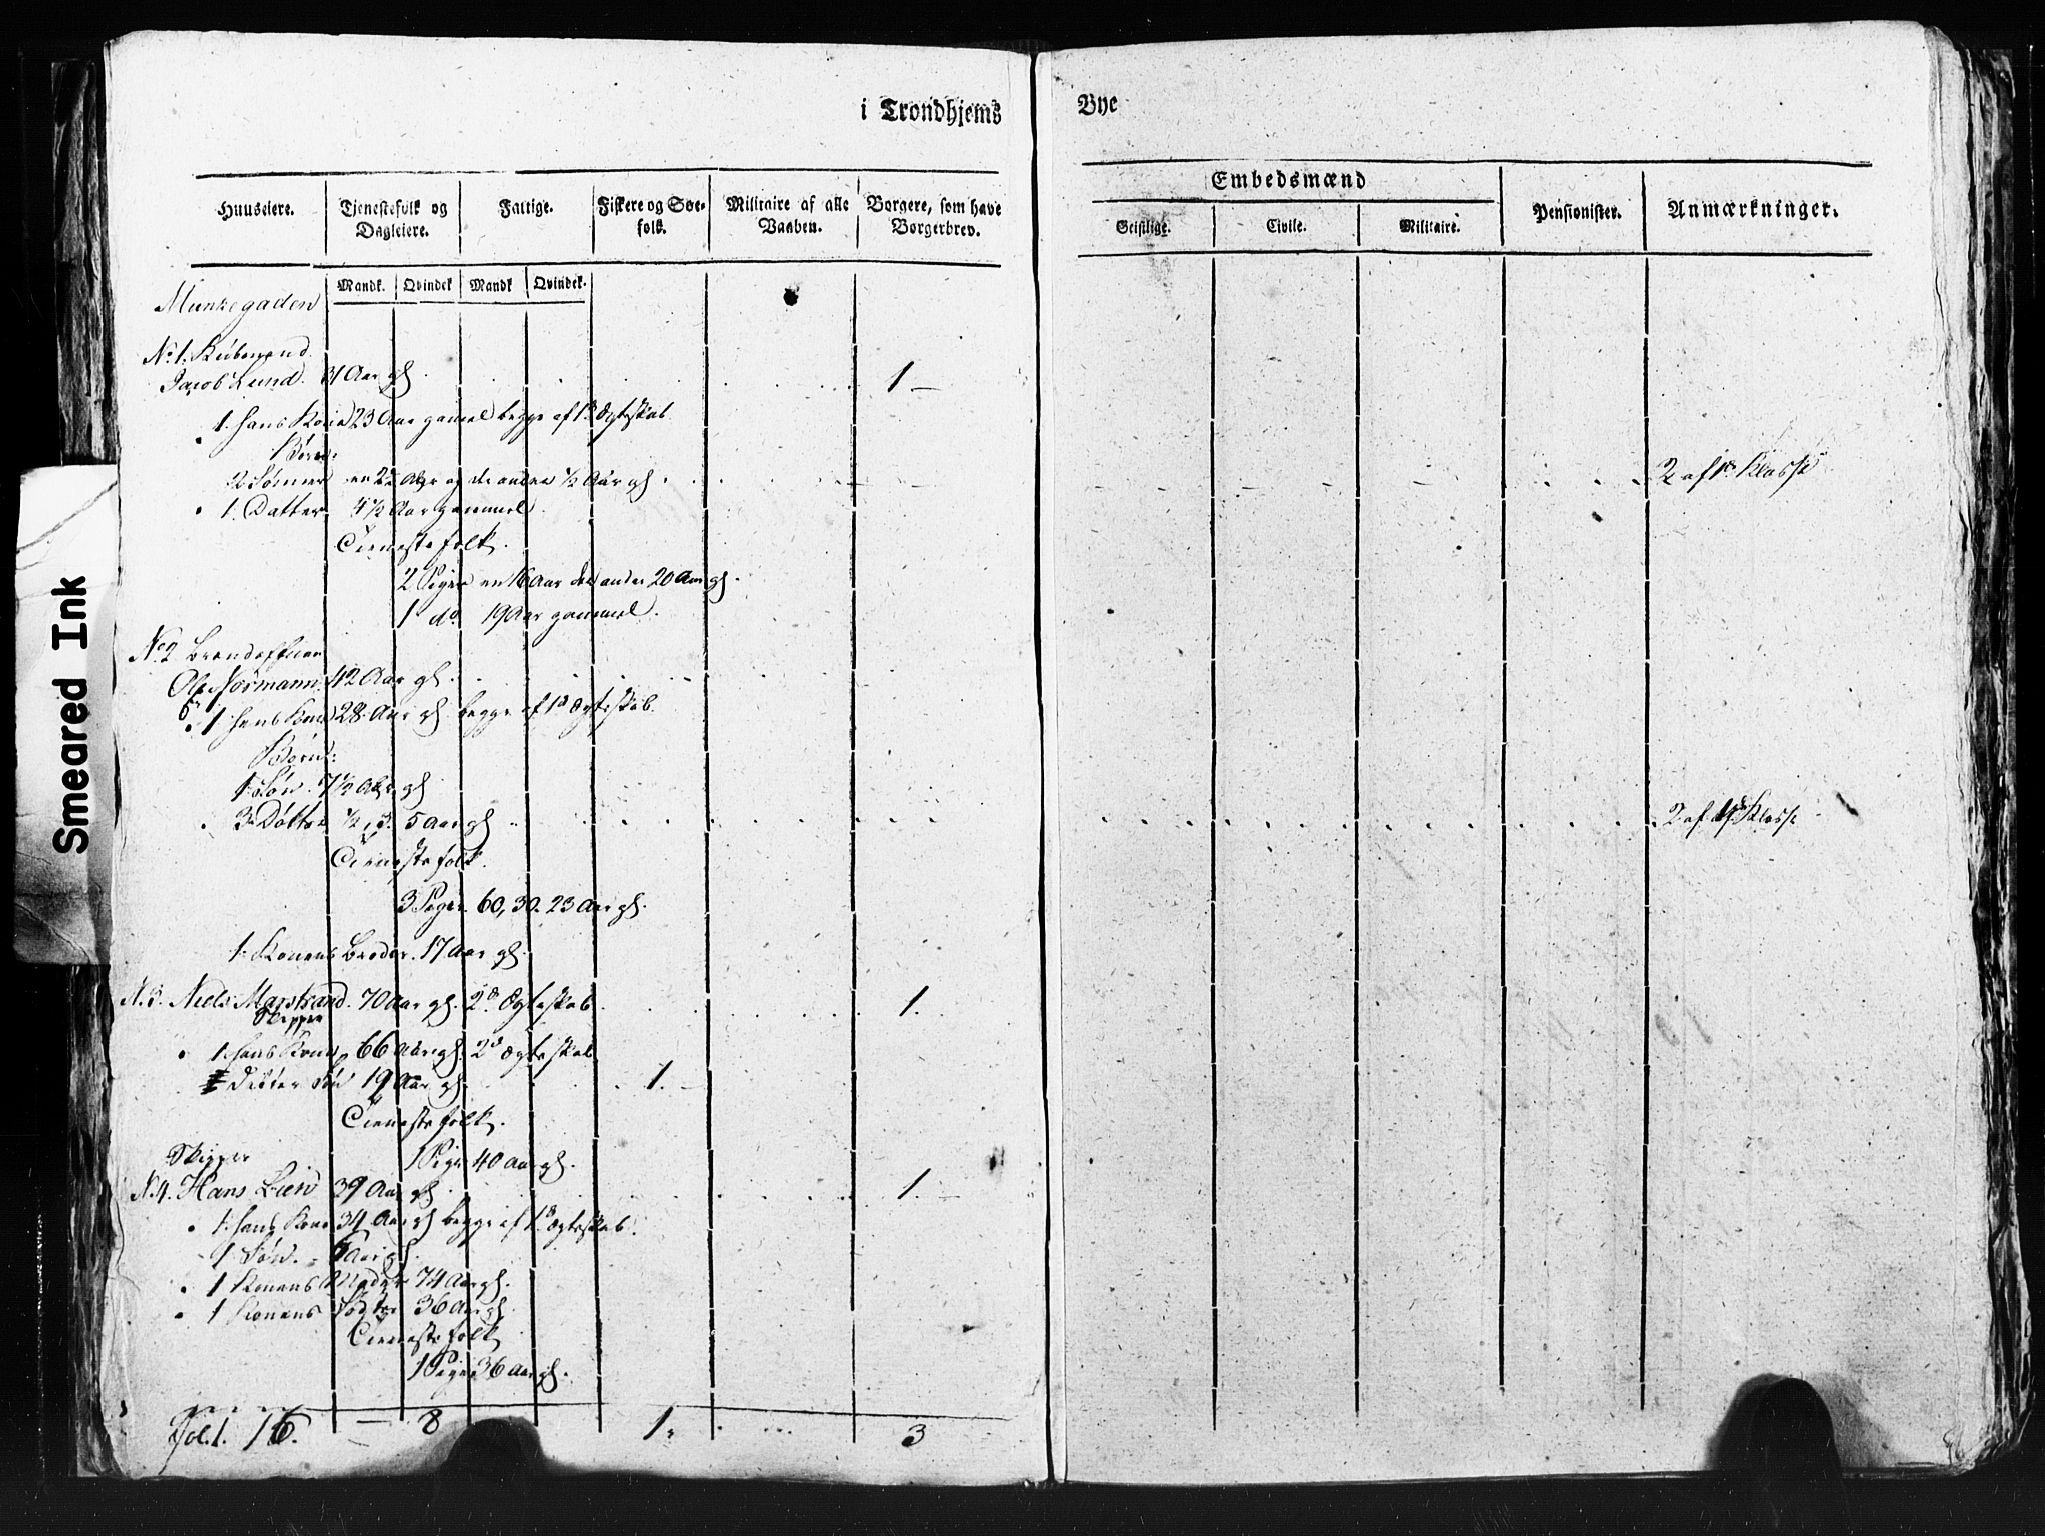 i Trondhjems
Bye
Huuseiere.
Tjenestefolk og Dagleiere.
Fattige.
Fiskere og Søe-folk.
Militaire af alle Vaaben.
Borgere, som have Borgerbrev.
Embedsmænd
Geistlige.
Civile.
Militaire.
Pensionister.
Anmærkninger.
Mandk. Qvindek Mandk Qvindek.
Munkegaden
No 1. Kiöbmand
Jacob Lund. 31 Aar gl. 1
1. hans Kone 23 Aar gamel begge af 1ste Ægteskab
Børn:
2 Sönner en 2½ Aar og de anden ½ Aar gl. 2 af 1e Klasse
1. Datter 4½ Aar gammel
Tienestefolk.
2 Piger en 16 Aar den anden 20 Aar gl.
1 do 19 Aar gammel.
No 2
Ole Normann 42 Aar gl.
1 hans Kone 28 Aar gl. begge af 1ste Ægteskab.
Børn:
1 Søn. 7½ Aar gl
3 Døttre ½, 3. 5 Aar gl 2 af 1e Klasse
Tienestefolk.
3 Piger. 60, 30. 23 Aar gl.
1. Konens Broder. 17 Aar gl.
N. 3. Niels Marstrand. 70 Aar gl. 2d Ægteskab 1.
Skipper
1 hans Kone 66 Aar gl. 2d Ægteskab
Søn 19 Aar gl 1.
Tienestefolk.
1 Pige 40 Aar gl.
Skipper
N. 4. Hans Lien 39 Aar gl. 1.
1. hans Kone 34 Aar gl begge af 1ste Ægteskab.
1 Søn. Aar gl.
1 Konens Moder 74 Aar gl.
1 Konens Søster 36 Aar gl
Tienestefolk
1 Pige 36 Aar gl.
Fol. 1. 16. — 8 1. 3
Smeared Ink